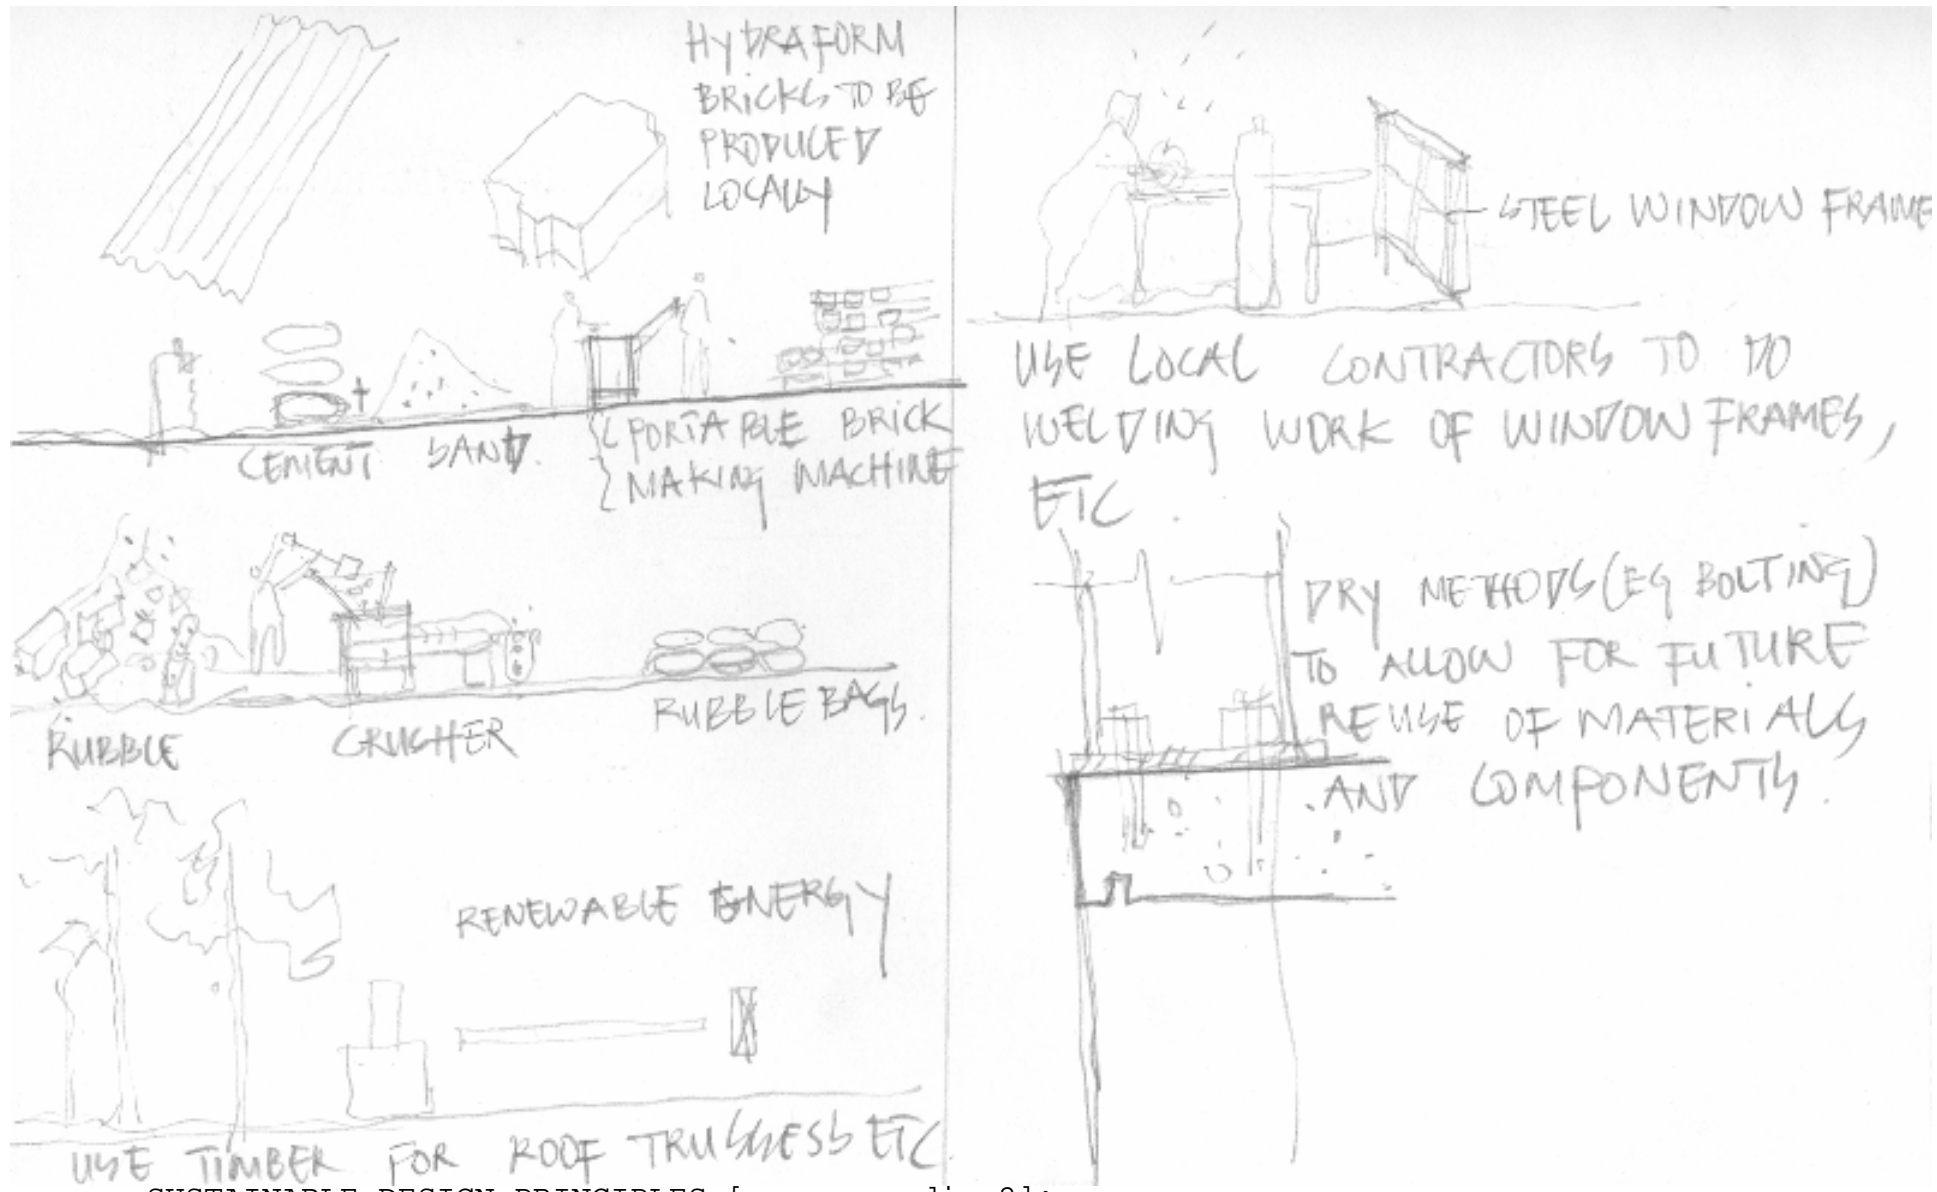 HYDRAFORM
BRICKS TO BE
PRODUCED
LOCALLY
CEMENT
+
SAND.
PORTABLE BRICK
MAKING MACHINE
RUBBLE
CRUSHER
RUBBLE BAGS.
RENEWABLE ENERGY
USE TIMBER FOR ROOF TRUSSESS ETC.
STEEL WINDOW FRAME
USE LOCAL CONTRACTORS TO DO
WELDING WORK OF WINDOW FRAMES,
ETC.
DRY METHODS (EG BOLTING)
TO ALLOW FOR FUTURE
REUSE OF MATERIALS
AND COMPONENTS.
SUSTAINABLE DESIGN PRINCIPLES